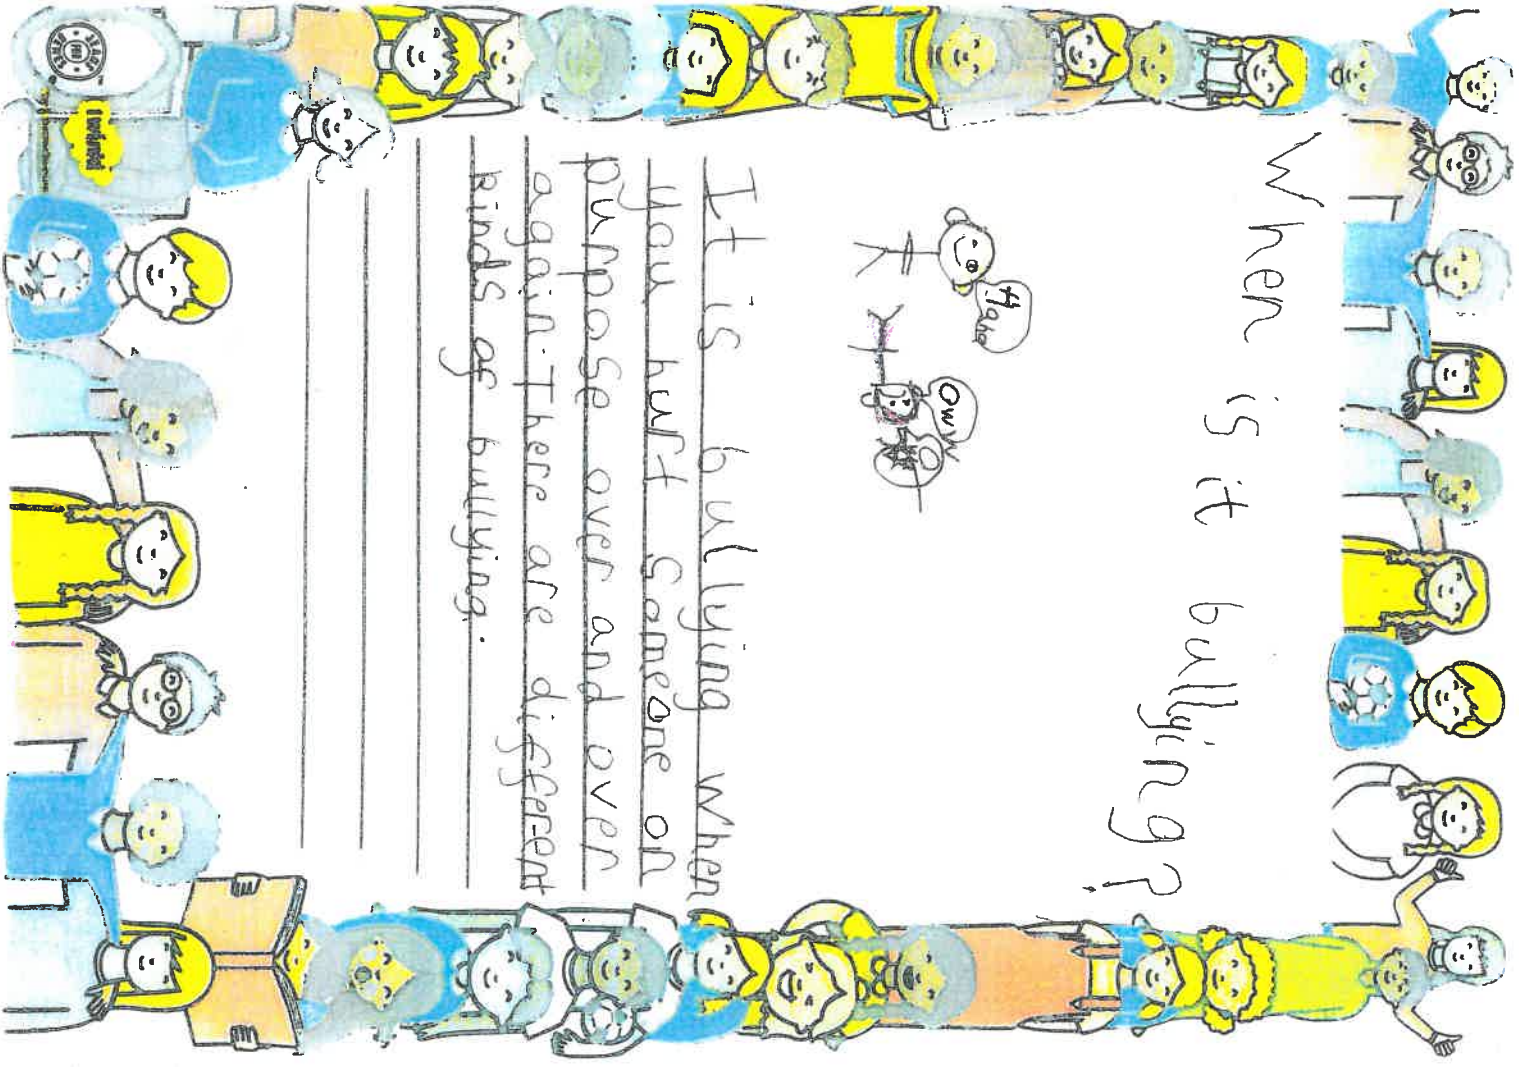 When is it bullying?
Haha
Oww
It is bullying when
you hurt someone on
purpose over and over
again. There are different
kinds of bullying.
twinkl